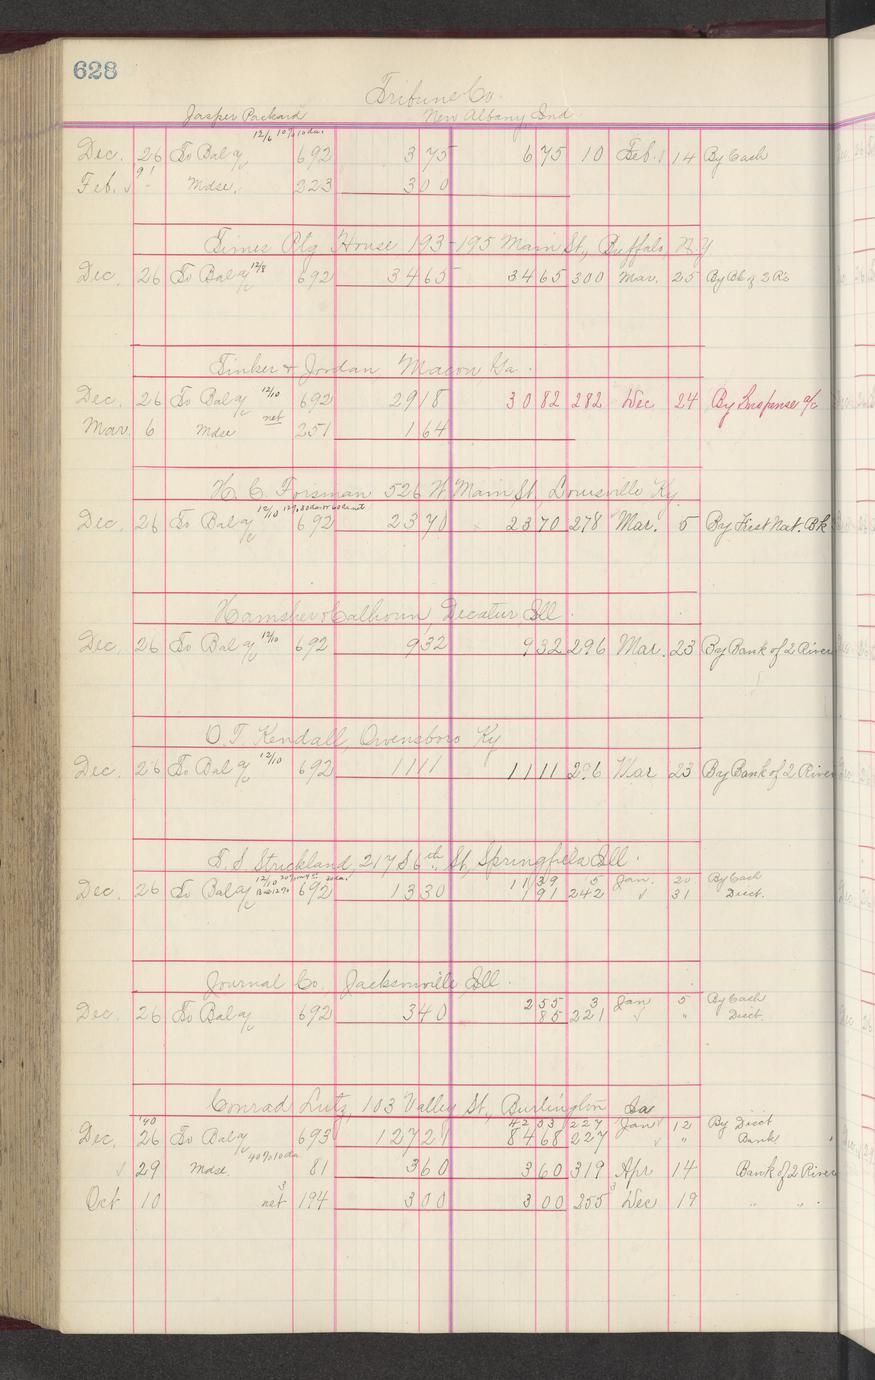 628
Tribune Co.
Jasper Packard New Albany, Ind.
12/6 10% 10 da.
Dec. 26 To Bal a/c 692 3 75 6 75 10 Feb. 14 By Cash
Feb. 9 Mdse. 223 3 00
Times Ptg House 193-195 Main St., Buffalo, N.Y
Dec 26 To Bal a/c 12/8 692 34 65 34 65 300 Mar. 25 By Bk of 2 Rs
Tinker & Jordan, Macon, Ga.
Dec. 26 To Bal a/c 12/10 692 29 18 30 82 282 Dec 24 By Suspense a/c
Mar. 6 Mdse net 251 1 64
H. C. Forsman 526 W Main St, Louisville Ky
Dec. 26 To Bal a/c 12/10 692 23 70 23 70 278 Mar. 5 By First Nat. Bk
Hamsher & Calhoun, Decatur Ill.
Dec. 26 To Bal a/c 12/10 692 9 32 9 32 296 Mar. 23 By Bank of 2 River
O. T. Kendall, Owensboro Ky
Dec. 26 To Bal a/c 12/10 692 11 11 11 11 296 Mar 23 By Bank of 2 River
T. S. Strickland, 217 S 6th St, Springfield Ill.
11 39 5 Jan. 20 By Cash
Dec 26 To Bal a/c 12/10 692 13 30 1 91 242 √ 31 Disct.
Journal Co. Jacksonville, Ill.
2 55 3 Jan 5 By Cash
Dec. 26 To Bal a/c 692 3 40 85 221 √ " Disct.
Conrad Lutz, 103 Valley St., Burlington Ia
'90 42 53 227 Jan 12 By Disct
Dec. 26 To Bal a/c 693 127 21 84 68 227 √ " Bank
√ 29 Mdse. 40% 10 da 81 3 60 3 60 319 Apr 14 Bank of 2 River
Oct 10 3 net 194 3 00 3 00 255 Dec 19 " " .